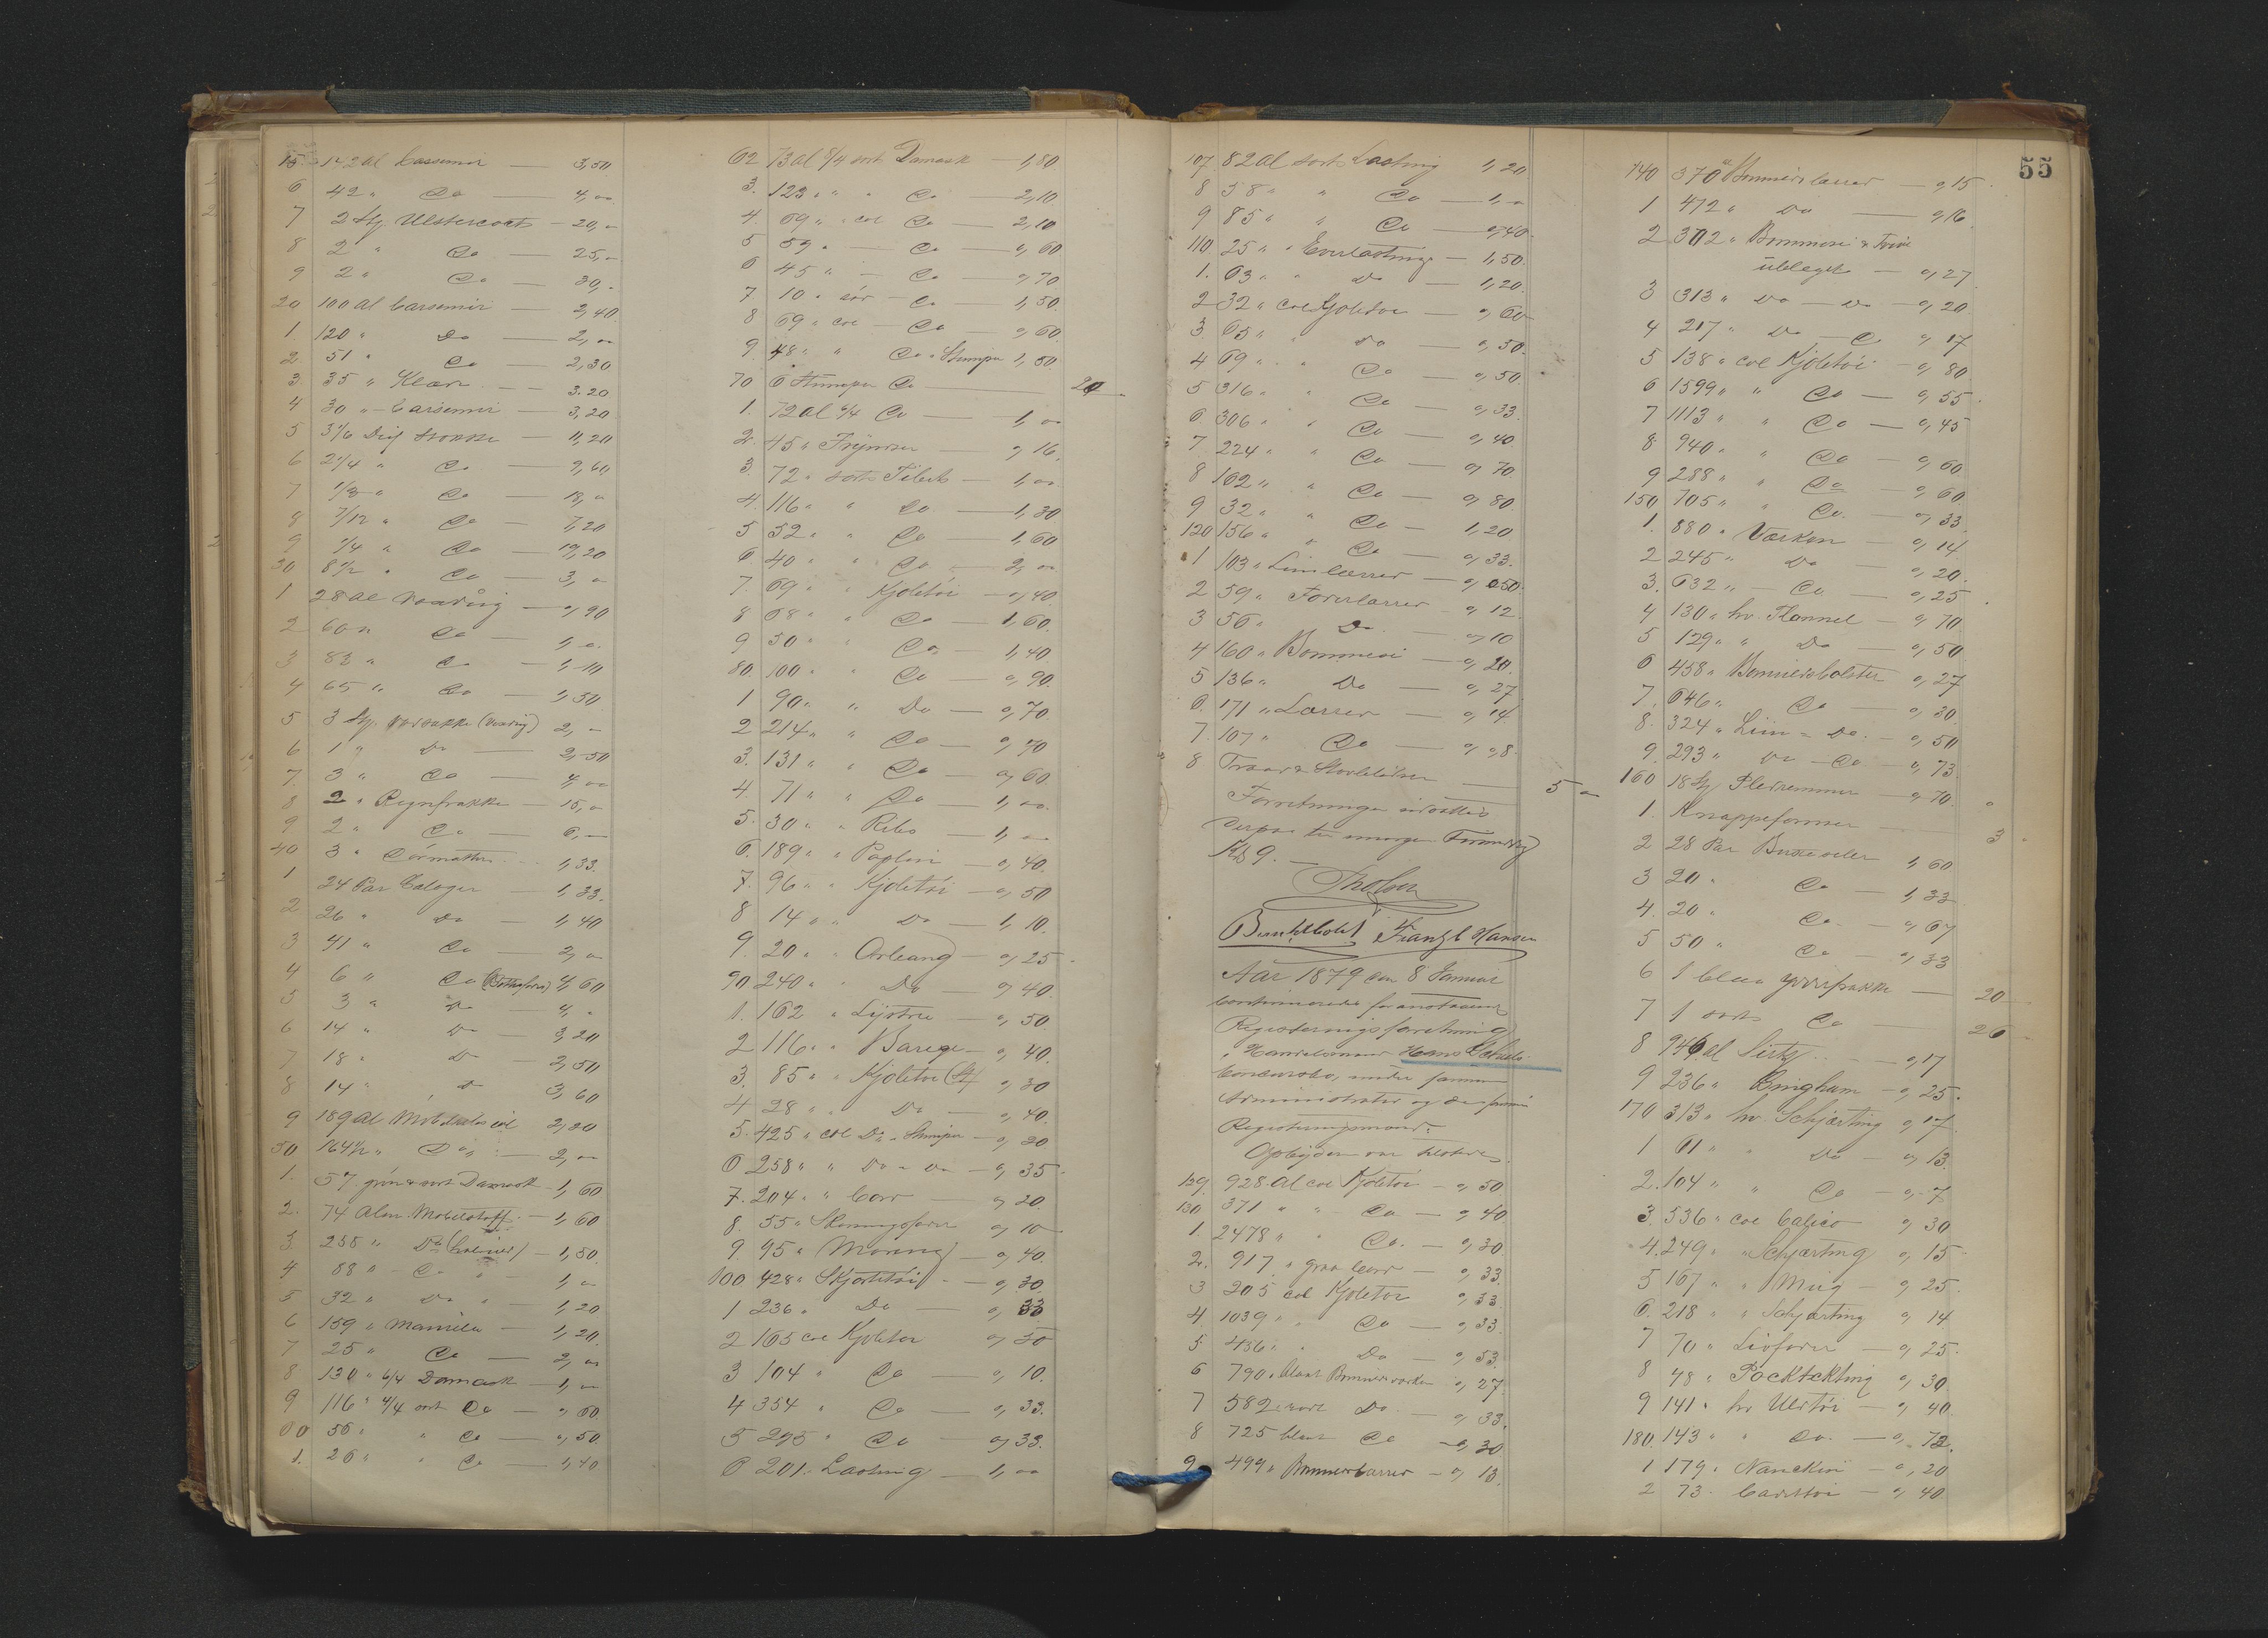 15. 142 al Carsemir — 3,50
6 42 " Do — 4,00
7 2 Stk Ulstercoats — 20,00
8 2 " Do — 25,00
9 2 " Do — 30,-
20 100 al Carsemir — 2,40
1 120 " Do — 2,00
2 51 " Do — 2,30
3. 35 " Klæde — 3.20
4 30 " Carsemir — 3,20
5 3 1/6 Dus — 11,20
6 2 1/4 " Do — 9,60
7 " Do — 18,00
8 7/12 " Do — 7,20
9 1/4 " Do — 19,20
30 8 1/2 " Do — 3,00
1 28 al — 0,90
2 60 " Do — 1,00
3 83 " Do — 1,10
4 65 " Do — 1,50
5 3 Stk 2,00
6 1 " Do — 2,50
7 3 " Do — 4,00
8 2 " Regnfrakke — 15,00
9 2 " Do — 6,00
40 3 " Dörmatter — 1,33.
1 24 Par Caloger — 1,33.
2 26 " Do — 1,40
3 41 " Do — 2,00
4 6 " Do 4,60
5 3 " Do — 4,-
6 14 " Do — 3,20
7 18 " Do — 2,50
8 14 " Do 3,60
9 189 al 2,20
50 164 1/2 " Do — 2,00
1. 57 grön & sort Damask — 1,60
2. 74 Alen Mobelstoff — 1,60
3. 258 " Do — 1,50
4 88 " Do " — 1,00
5 32 " Do " — 1,20
6 159 " Manilla — 1,20
7 25 " Do — 2,00
8 130 " 6/4 Damask — 1,00
9 116 " 4/4 sort Do — 0,60.
60 56 " " Do — 0,50
1. 26 " " Do — 1,40
62 73 al 6/4 sort Damask — 1,80
3. 123 " " Do — 2,10
4. 69 " col Do — 2,10
5 59 " — Do — 0,60
6 45 " — Do — 0,70
7 10 " Do — 1,50
8 69 " col — Do — 0,60
9 48 " " Do " Stumper 1,50
70 6 Stumper Do — 20
1. 72 al 6/4 Do — 1,00
2. 45 " Frynser — 0,16
3. 72 " sort Tibet — 1,00
4. 116 " " Do — 1,30
5 52 " " Do — 1,60
6 40 " " Do — 2,00
7. 69 " " Kjoletöi — 0,40
8 68 " " Do — 1,60.
9 50 " " Do — 1,40.
80 100 " " Do — 0,90.
1 90 " " Do — 0,70
2 214 " " Do — 0,70
3. 131 " " Do — 0,60.
4 71 " " Do — 1,00.
5. 30 " " Ribs — 1,00
6. 189 " " Poplin — 0,40.
7. 96 " " Kjoletöi — 0,50
8 14 " " Do — 1,10.
9. 20 " " Orleang — 0,25
90 240 " " Do — 0,40.
1. 162 " Lystre — 0,50.
2 116 " " Barege — 0,40.
3. 85 " " Kjoletöi 0,30
4 28 " " Do — 0,40.
5. 425 " col Do " Stumper — 0,20
6 258 " " Do " Do — 0,35
7. 204 " " — 0,20.
8. 55 " 0,10
9. 95 " Moreng — 0,40.
100 428 " Skjortetöi — 0,30
1 236 " Do — 0,33
2 165 col Kjoletöi 0,50
3 104 " Do — 0,10.
4 354 " Do — 0,33.
5 295 " Do — 0,33.
6 201 " Lasting — 1,00
107 82 al sort Lasting 1,20
8 58 " " Do — 1,00
9 85 " " Do — 0,40.
110. 25 " " Everlasting — 1,50.
1. 63 " " Do — 1,20.
2 32 " col Kjoletöi — 0,60
3 65 " " Do — 0,50.
4 69 " " Do — 0,50
5 316 " " Do — 0,33.
6 306 " " Do — 0,40
7 224 " " Do — 0,70
8 162 " " Do — 0,80.
9 32 " " Do — 1,20
120 156 " " Do — 0,33.
1 103 " Liinlærred — 0,50
2 59 " Foerlærred — 0,12
3 56 " Do — 0,10
4 160 " Bommesi — 0,20.
5 136 " Do — 0,27
6. 171 " Lærred — 0,14.
7. 107 " Do — 0,08.
8 Traad & 5 -
Forretningen udsattes
derpaa til imorgen Formiddag
Kl 9. —
Tholsen
Franz L Hansen
Aar 1879 den 8 Januar
continueredes foranstaaende
Registeringsforretning
i Handelsmand Hans
Concursbo, under samme
Administrator og de samme
Registeringsmænd:
Opbyden var tilstede.
129 928 al col Kjoletöi — 0,50.
130 371 " " Do — 0,40
1. 2478 " " Do. — 0,30
2. 917 " graa — 0,33.
3 205 col Kjoletöi 0,33
4 1039 " " Do — 0,33.
5 436 " " Do — 0,53.
6 790 " blaat 0,27.
7 582 " sort Do — 0,33.
8 725 blaat Do — 0,30
9 499 " Bommerslærred — 0,13.
55
140 370 al Bommerslærred — 0,15.
1 472 " Do — 0,16
2 302 " Bommesi &
ubleget — 0,27
3 313 " Do — Do — 0,20
4 217 " Do — Do 0,17
5 138 " col Kjoletöi — 0,80
6 1599 " " Do — 0,55
7 1113 " " Do — 0,45
8 940 " " Do — 0,60
9 288 " " Do — 0,60
150 705 " " Do. — 0,33
1. 880 " Værken — 0,14
2 245 " Do — 0,20.
3. 632 " Do — 0,25
4 130 " hv. Flannel — 0,70
5 129 " " Do — 0,50
6 458 " Bommersbolster 0,27
7. 646 " Do — 0,30
8. 324 " Liin " Do. — 0,50
9. 293 " Do — Do — 0,73
160 18 Stk Pledremmer — 0,70.
1. Knappeformer — 3
2 28 Par Buxeseler 1,60
3 20 " Do — 1,33
4. 20 " Do. — 0,67
5 50 " Do — 0,33
6 1 blaa — 20
7 1 sort Do — 26
8 946 al Sirts — 0,17
9 236 " Gingham — 0,25.
170 313 " hv. Schjærting 0,17.
1 61 " " Do — 0,13.
2. 104 " " Do — 0,7
3. 536 " col Calico — 0,30
4. 249 " " Schjærting 0,15
5 167 " " — 0,25.
6. 218 " " Schjærting 0,14
7 70 " Livfoder — 0,25.
8 48 " 0,30
9 141 " hv Uldtöi — 0,40.
180. 143 " " Do. — 0,72.
1 179 " Nanckin — 0,20
2 73 " — 0,40